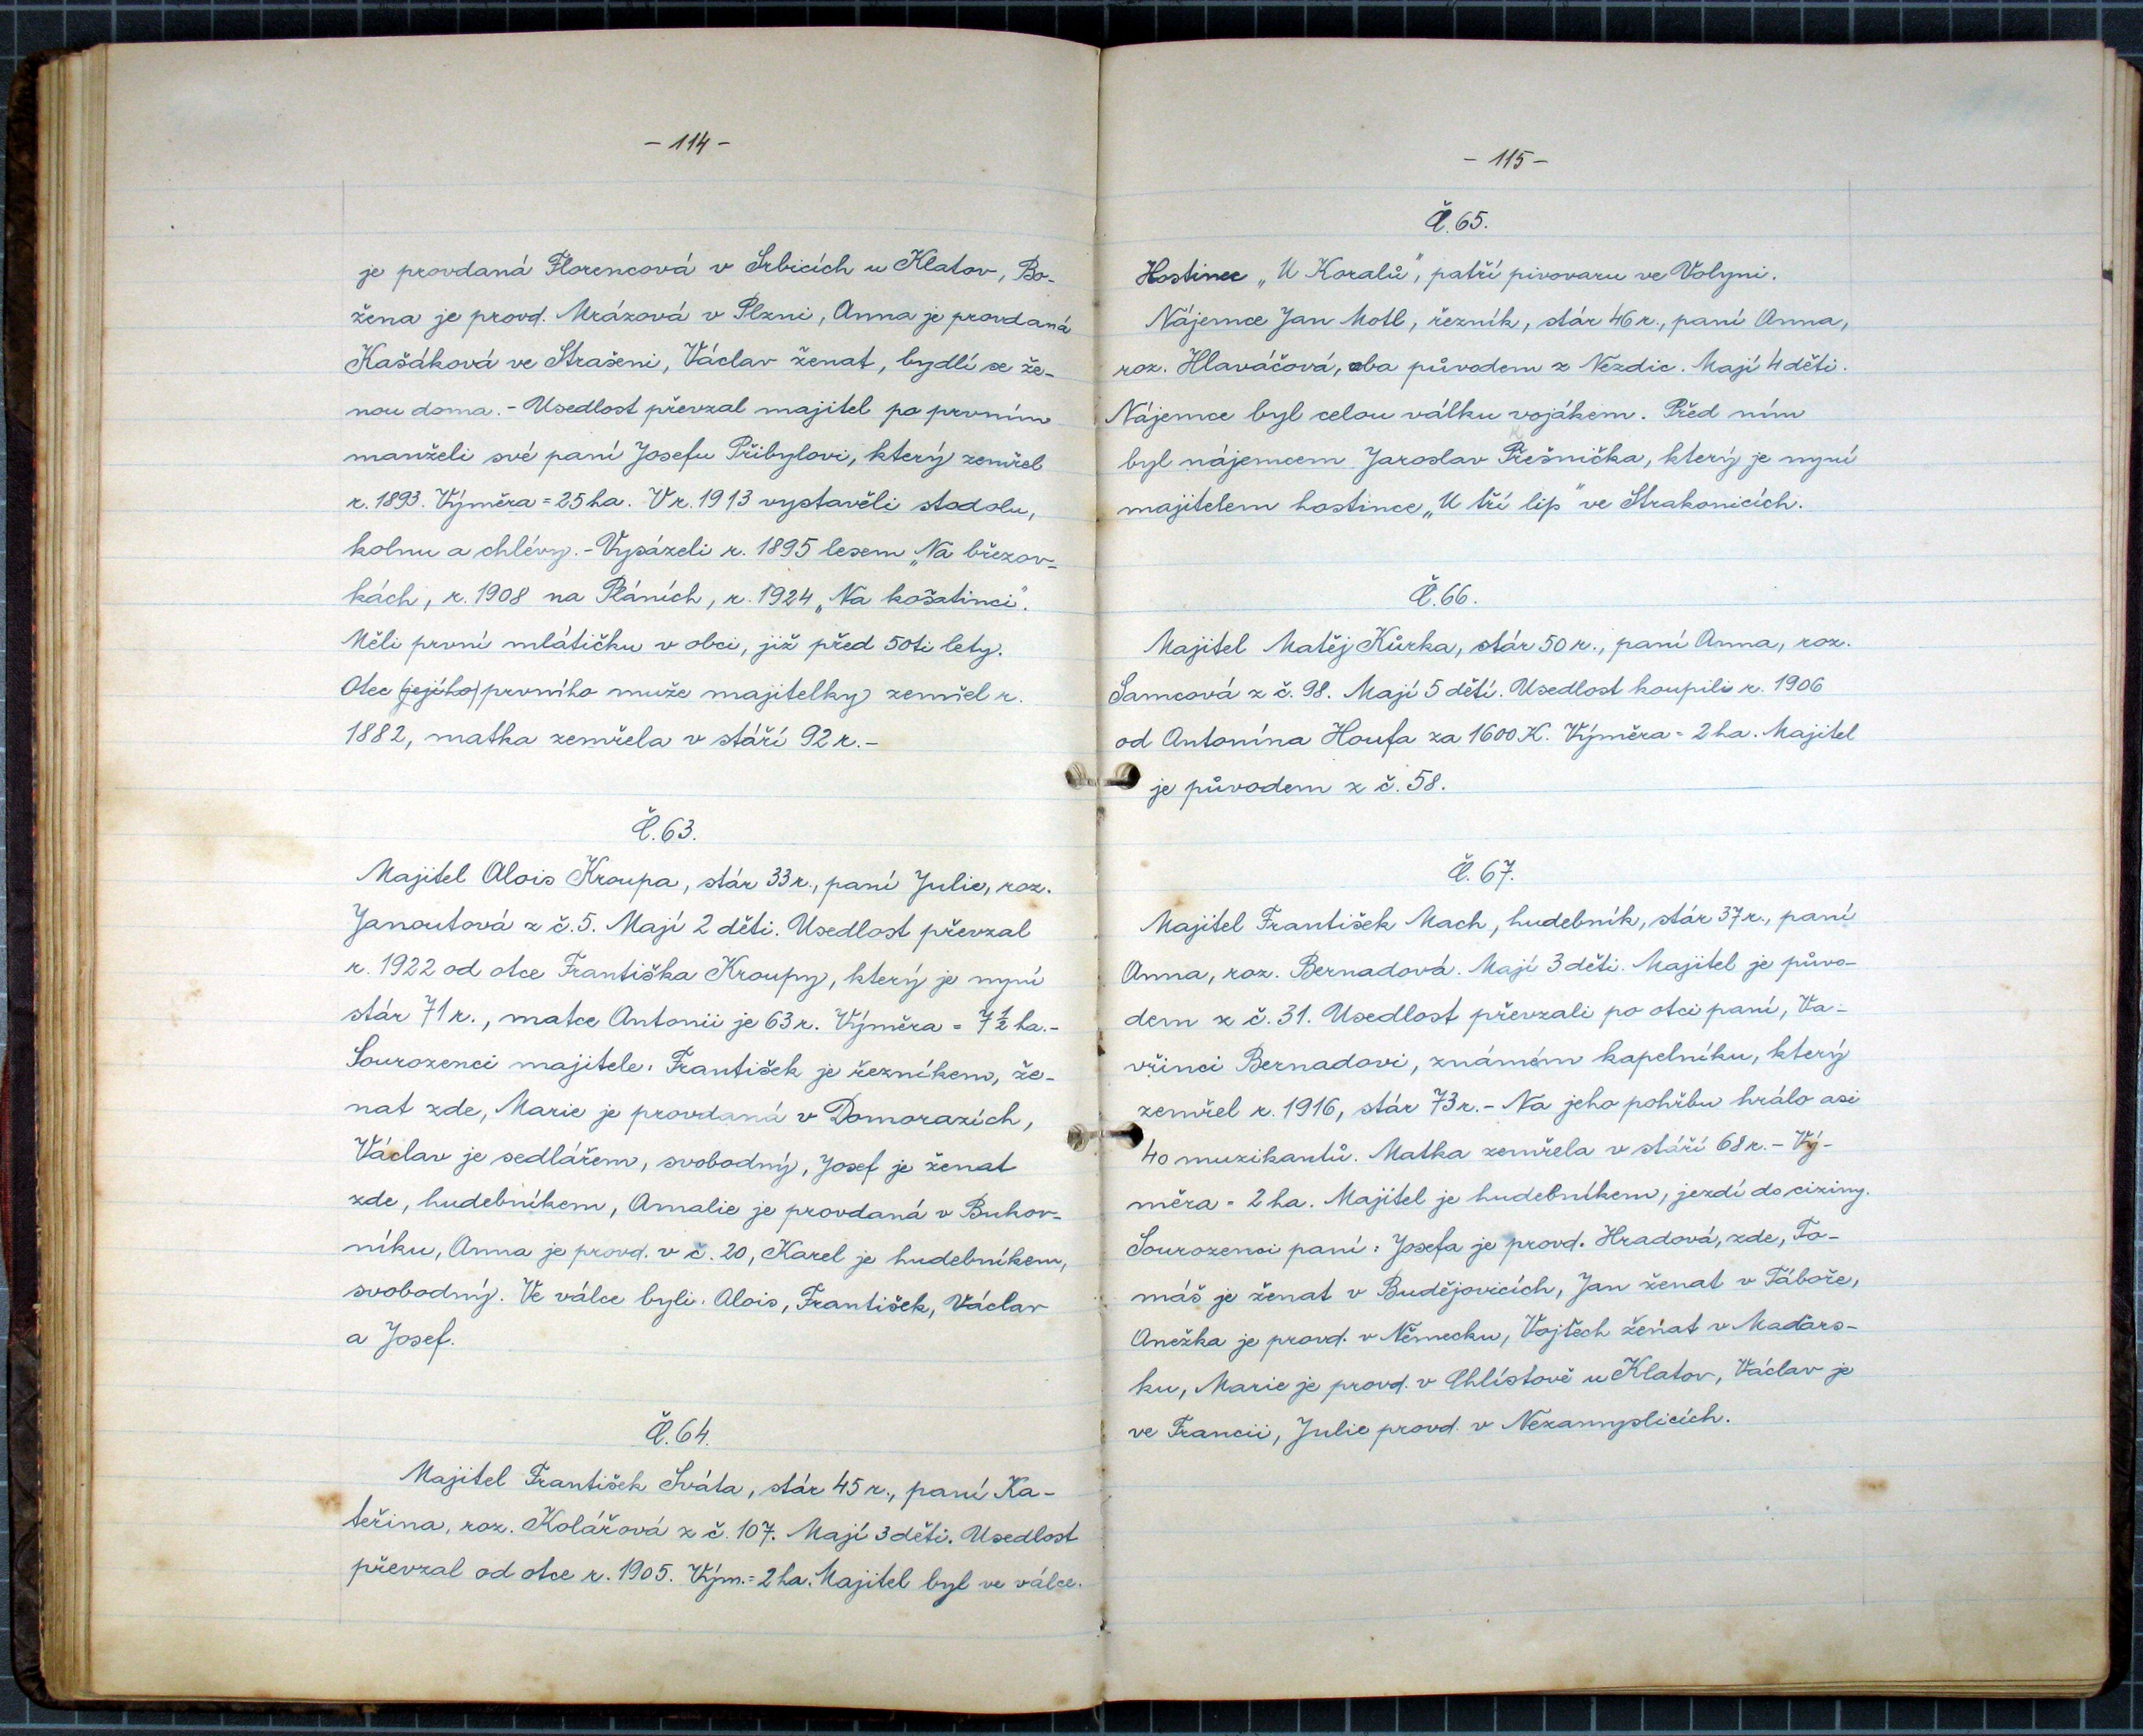 - 114 -
je provdaná Florencová v Srbicích u Klatov, Bo-
žena je provd. Mrázová v Plzni, Anna je provdaná
Kašáková ve Strašeni, Václav ženat, bydlí se že-
nou doma. - Usedlost převzal majitel po prvním
manželi své paní Josefu Přibylovi, který zemřel
r. 1893. Výměra = 25 ha. V r. 1913 vystavěli stodolu,
kolnu a chlévy. - Vysázeli r. 1895 lesem „Na březov-
kách, r. 1908 na Pláních, r. 1924 „Na košatinci".
Měli první mlátičku v obci, již před 50ti lety.
Otec (jejího) prvního muže majitelky zemřel r.
1882, matka zemřela v stáří 92 r. -
Č. 63.
Majitel Alois Kroupa, stár 33 r., paní Julie, roz.
Janoutová z č. 5. Mají 2 děti. Usedlost převzal
r. 1922 od otce Františka Kroupy, který je nyní
stár 71 r., matce Antonii je 63 r. Výměra = 7½ ha. -
Sourozenci majitele: František je řezníkem, že-
nat zde, Marie je provdaná v Domorazích,
Václav je sedlářem, svobodný, Josef je ženat
zde, hudebníkem, Amalie je provdaná v Bukov-
níku, Anna je provd. v č. 20, Karel je hudebníkem,
svobodný. Ve válce byli: Alois, František, Václav
a Josef.
Č. 64.
Majitel František Sváta, stár 45 r., paní Ka-
teřina, roz. Kolářová z č. 107. Mají 3 děti. Usedlost
převzal od otce r. 1905. Vým. = 2 ha. Majitel byl ve válce.
- 115 -
Č. 65.
Hostinec „U Koralů", patří pivovaru ve Volyni.
Nájemce Jan Motl, řezník, stár 46 r., paní Anna,
roz. Hlaváčová, oba původem z Nezdic. Mají 4 děti.
Nájemce byl celou válku vojákem. Před ním
byl nájemcem Jaroslav Přešnička, který je nyní
majitelem hostince „U tří lip" ve Strakonicích.
Č. 66.
Majitel Matěj Kůrka, stár 50 r., paní Anna, roz.
Samcová z č. 98. Mají 5 dětí. Usedlost koupili r. 1906
od Antonína Houfa za 1600 K. Výměra = 2 ha. Majitel
je původem z č. 58.
Č. 67.
Majitel František Mach, hudebník, stár 37 r., paní
Anna, roz. Bernadová. Mají 3 děti. Majitel je půvo-
dem z č. 31. Usedlost převzali po otci paní, Va-
vřinci Bernadovi, známém kapelníku, který
zemřel r. 1916, stár 73 r. - Na jeho pohřbu hrálo asi
40 muzikantů. Matka zemřela v stáří 68 r. - Vý-
měra = 2 ha. Majitel je hudebníkem, jezdí do ciziny.
Sourozenci paní: Josefa je provd. Hradová, zde, To-
máš je ženat v Budějovicích, Jan ženat v Táboře,
Anežka je provd. v Německu, Vojtěch ženat v Maďars-
ku, Marie je provd. v Chlístově u Klatov, Václav je
ve Francii, Julie provd. v Nezamyslicích.